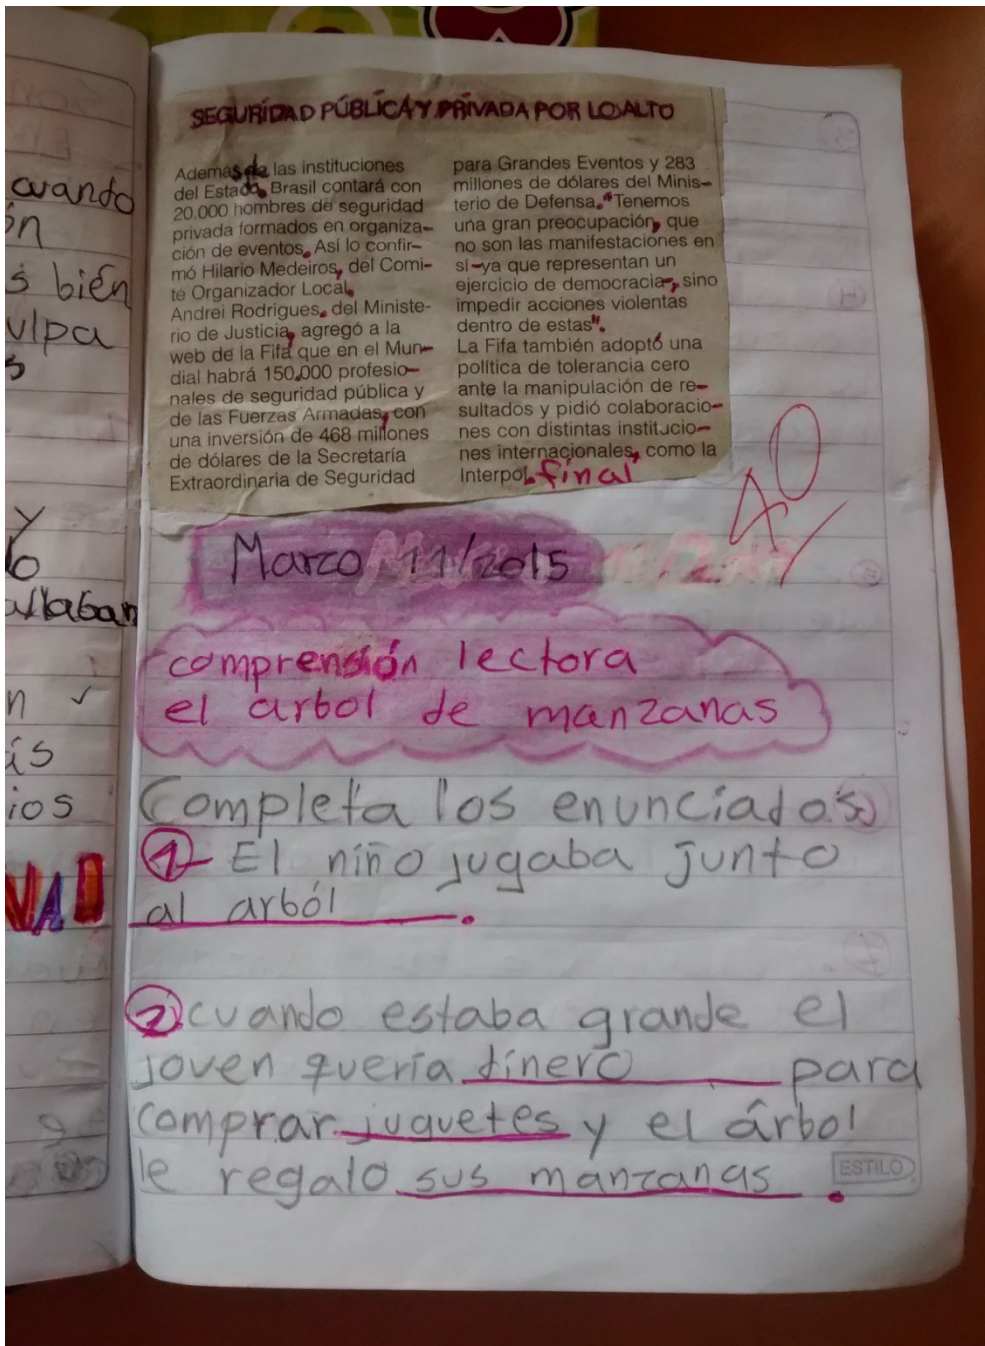 cuando
ón
s bién
ulpa
s
y
lo
allaban
n
ás
ios
SEGURIDAD PÚBLICA Y PRIVADA POR LO ALTO
Además de las instituciones
del Estado, Brasil contará con
20.000 hombres de seguridad
privada formados en organiza-
ción de eventos. Así lo confir-
mó Hilario Medeiros, del Comi-
té Organizador Local.
Andrei Rodrigues, del Ministe-
rio de Justicia, agregó a la
web de la Fifa que en el Mun-
dial habrá 150.000 profesio-
nales de seguridad pública y
de las Fuerzas Armadas, con
una inversión de 468 millones
de dólares de la Secretaría
Extraordinaria de Seguridad
para Grandes Eventos y 283
millones de dólares del Minis-
terio de Defensa. "Tenemos
una gran preocupación, que
no son las manifestaciones en
sí -ya que representan un
ejercicio de democracia-, sino
impedir acciones violentas
dentro de estas".
La Fifa también adoptó una
política de tolerancia cero
ante la manipulación de re-
sultados y pidió colaboracio-
nes con distintas institucio-
nes internacionales, como la
Interpol. final
Marzo 11/2015
comprensión lectora
el arbol de manzanas
Completa los enunciados
1- El niño jugaba junto
al arból.
2 cuando estaba grande el
joven quería dinero para
comprar juguetes y el árbol
le regalo sus manzanas.
ESTILO